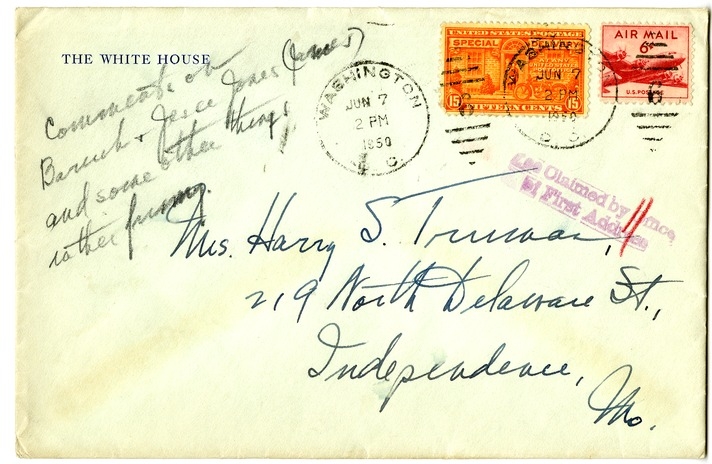 THE WHITE HOUSE
Comments on
Baruch + Jesse Jones (Jones)
and some other things
rather funny.
WASHINGTON
JUN 7
2 PM
1950
D. C.
UNITED STATES POSTAGE
SPECIAL DELIVERY
15 15
FIFTEEN CENTS
JUN 7
2 PM
1950
D. C.
AIR MAIL
6¢
U.S. POSTAGE
Claimed by Office
First Address
Mrs. Harry S. Truman,
219 North Delaware St.,
Independence,
Mo.